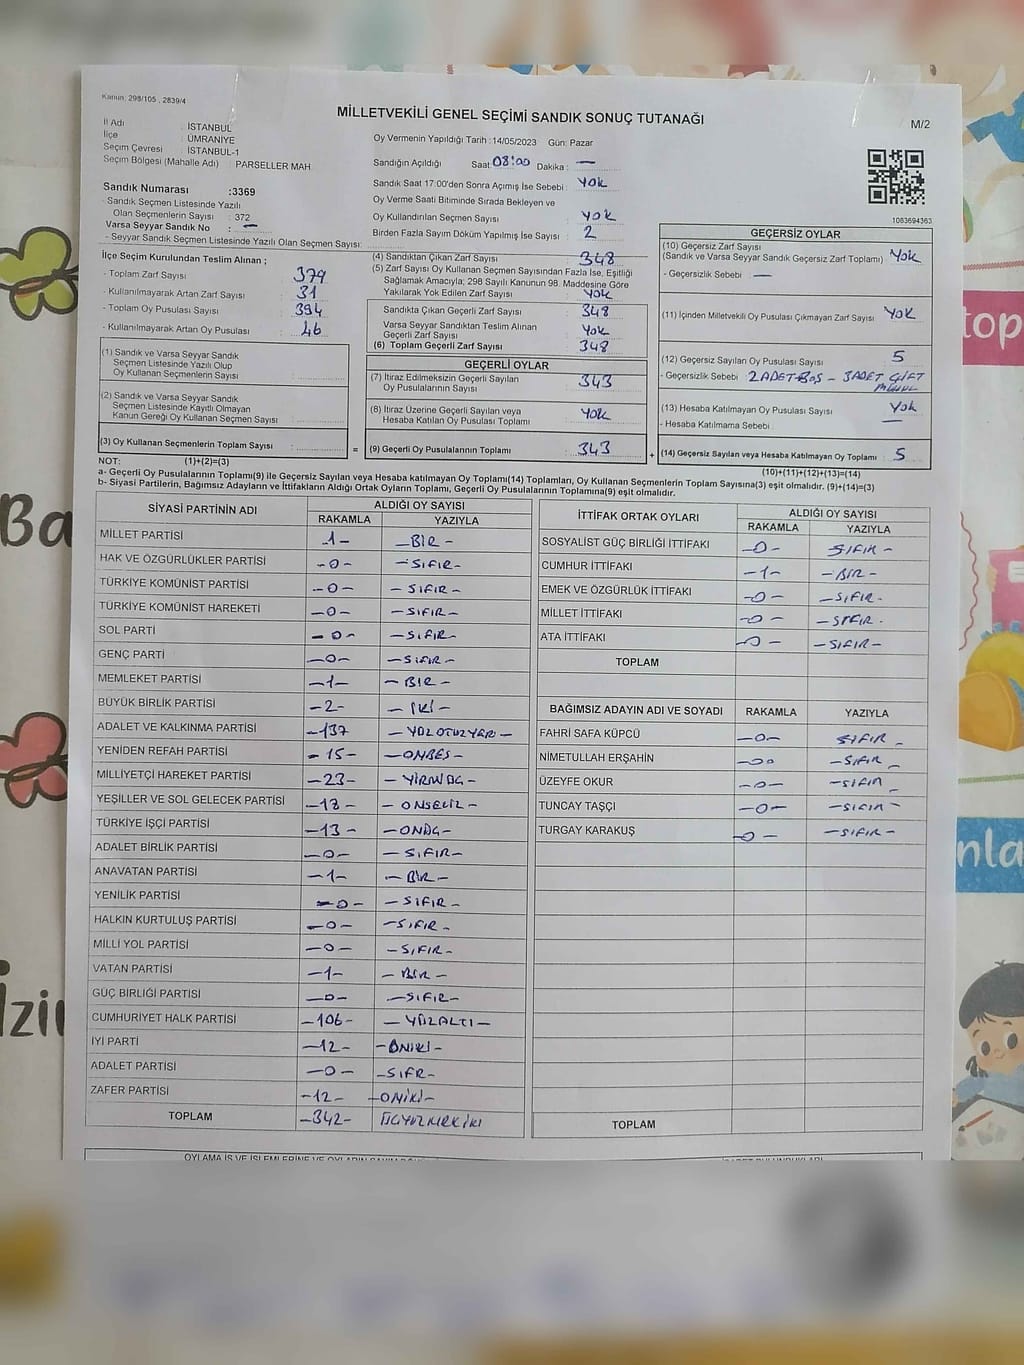 Kanun: 298/105 , 2839/4
MİLLETVEKİLİ GENEL SEÇİMİ SANDIK SONUÇ TUTANAĞI
M/2
İl Adı : İSTANBUL
İlçe : ÜMRANİYE
Seçim Çevresi : İSTANBUL-1
Seçim Bölgesi (Mahalle Adı) : PARSELLER MAH.
Sandık Numarası :3369
- Sandık Seçmen Listesinde Yazılı
Olan Seçmenlerin Sayısı : 372
Varsa Seyyar Sandık No : —
- Seyyar Sandık Seçmen Listesinde Yazılı Olan Seçmen Sayısı:
Oy Vermenin Yapıldığı Tarih :14/05/2023 Gün: Pazar
Sandığın Açıldığı Saat: 08:00 Dakika : —
Sandık Saat 17:00'den Sonra Açımış İse Sebebi : YOK
Oy Verme Saati Bitiminde Sırada Bekleyen ve
Oy Kullandırılan Seçmen Sayısı : YOK
Birden Fazla Sayım Döküm Yapılmış İse Sayısı : 2
1083694363
İlçe Seçim Kurulundan Teslim Alınan ;
- Toplam Zarf Sayısı : 379
- Kullanılmayarak Artan Zarf Sayısı : 31
- Toplam Oy Pusulası Sayısı : 394
- Kullanılmayarak Artan Oy Pusulası : 46
(1) Sandık ve Varsa Seyyar Sandık
Seçmen Listesinde Yazılı Olup
Oy Kullanan Seçmenlerin Sayısı :
(2) Sandık ve Varsa Seyyar Sandık
Seçmen Listesinde Kayıtlı Olmayan
Kanun Gereği Oy Kullanan Seçmen Sayısı :
(3) Oy Kullanan Seçmenlerin Toplam Sayısı :
(4) Sandıktan Çıkan Zarf Sayısı : 348
(5) Zarf Sayısı Oy Kullanan Seçmen Sayısından Fazla İse, Eşitliği
Sağlamak Amacıyla; 298 Sayılı Kanunun 98. Maddesine Göre
Yakılarak Yok Edilen Zarf Sayısı : YOK
Sandıkta Çıkan Geçerli Zarf Sayısı : 348
Varsa Seyyar Sandıktan Teslim Alınan
Geçerli Zarf Sayısı : YOK
(6) Toplam Geçerli Zarf Sayısı : 348
GEÇERLİ OYLAR
(7) İtiraz Edilmeksizin Geçerli Sayılan
Oy Pusulalarının Sayısı : 343
(8) İtiraz Üzerine Geçerli Sayılan veya
Hesaba Katılan Oy Pusulası Toplamı : YOK
= (9) Geçerli Oy Pusulalarının Toplamı : 343
GEÇERSİZ OYLAR
(10) Geçersiz Zarf Sayısı
(Sandık ve Varsa Seyyar Sandık Geçersiz Zarf Toplamı) : YOK
- Geçersizlik Sebebi : —
(11) İçinden Milletvekili Oy Pusulası Çıkmayan Zarf Sayısı : YOK
(12) Geçersiz Sayılan Oy Pusulası Sayısı : 5
- Geçersizlik Sebebi : 2 ADET BOŞ - 3 ADET ÇİFT
MÜHÜR
(13) Hesaba Katılmayan Oy Pusulası Sayısı : Yok
- Hesaba Katılmama Sebebi : —
+ (14) Geçersiz Sayılan veya Hesaba Katılmayan Oy Toplamı : 5
NOT: (1)+(2)=(3)
(10)+(11)+(12)+(13)=(14)
a- Geçerli Oy Pusulalarının Toplamı(9) ile Geçersiz Sayılan veya Hesaba katılmayan Oy Toplamı(14) Toplamları, Oy Kullanan Seçmenlerin Toplam Sayısına(3) eşit olmalıdır. (9)+(14)=(3)
b- Siyasi Partilerin, Bağımsız Adayların ve İttifakların Aldığı Ortak Oyların Toplamı, Geçerli Oy Pusulalarının Toplamına(9) eşit olmalıdır.
SİYASİ PARTİNİN ADI ALDIĞI OY SAYISI
RAKAMLA YAZIYLA
MİLLET PARTİSİ -1- -BİR-
HAK VE ÖZGÜRLÜKLER PARTİSİ -0- -SIFIR-
TÜRKİYE KOMÜNİST PARTİSİ -0- -SIFIR-
TÜRKİYE KOMÜNİST HAREKETİ -0- -SIFIR-
SOL PARTİ -0- -SIFIR-
GENÇ PARTİ -0- -SIFIR-
MEMLEKET PARTİSİ -1- -BİR-
BÜYÜK BİRLİK PARTİSİ -2- -İKİ-
ADALET VE KALKINMA PARTİSİ -137 -YÜZOTUZYEDİ-
YENİDEN REFAH PARTİSİ -15- -ONBEŞ-
MİLLİYETÇİ HAREKET PARTİSİ -23- -YİRMİÜÇ-
YEŞİLLER VE SOL GELECEK PARTİSİ -18- -ONSEKİZ-
TÜRKİYE İŞÇİ PARTİSİ -13- -ONÜÇ-
ADALET BİRLİK PARTİSİ -0- -SIFIR-
ANAVATAN PARTİSİ -1- -BİR-
YENİLİK PARTİSİ -0- -SIFIR-
HALKIN KURTULUŞ PARTİSİ -0- -SIFIR-
MİLLİ YOL PARTİSİ -0- -SIFIR-
VATAN PARTİSİ -1- -BİR-
GÜÇ BİRLİĞİ PARTİSİ -0- -SIFIR-
CUMHURİYET HALK PARTİSİ -106- -YÜZALTI-
İYİ PARTİ -12- -ONİKİ-
ADALET PARTİSİ -0- -SIFR-
ZAFER PARTİSİ -12- -ONİKİ-
TOPLAM -342- ÜÇYÜZKIRKİKİ
İTTİFAK ORTAK OYLARI ALDIĞI OY SAYISI
RAKAMLA YAZIYLA
SOSYALİST GÜÇ BİRLİĞİ İTTİFAKI -0- SIFIR-
CUMHUR İTTİFAKI -1- -BİR-
EMEK VE ÖZGÜRLÜK İTTİFAKI -0- -SIFIR-
MİLLET İTTİFAKI -0- -SIFIR-
ATA İTTİFAKI -0- -SIFIR-
TOPLAM
BAĞIMSIZ ADAYIN ADI VE SOYADI RAKAMLA YAZIYLA
FAHRİ SAFA KÜPCÜ -0- SIFIR-
NİMETULLAH ERŞAHİN -0- -SIFIR-
ÜZEYFE OKUR -0- -SIFIR-
TUNCAY TAŞÇI -0- -SIFIR-
TURGAY KARAKUŞ -0- -SIFIR-
TOPLAM
top
Ba
nla
İzin